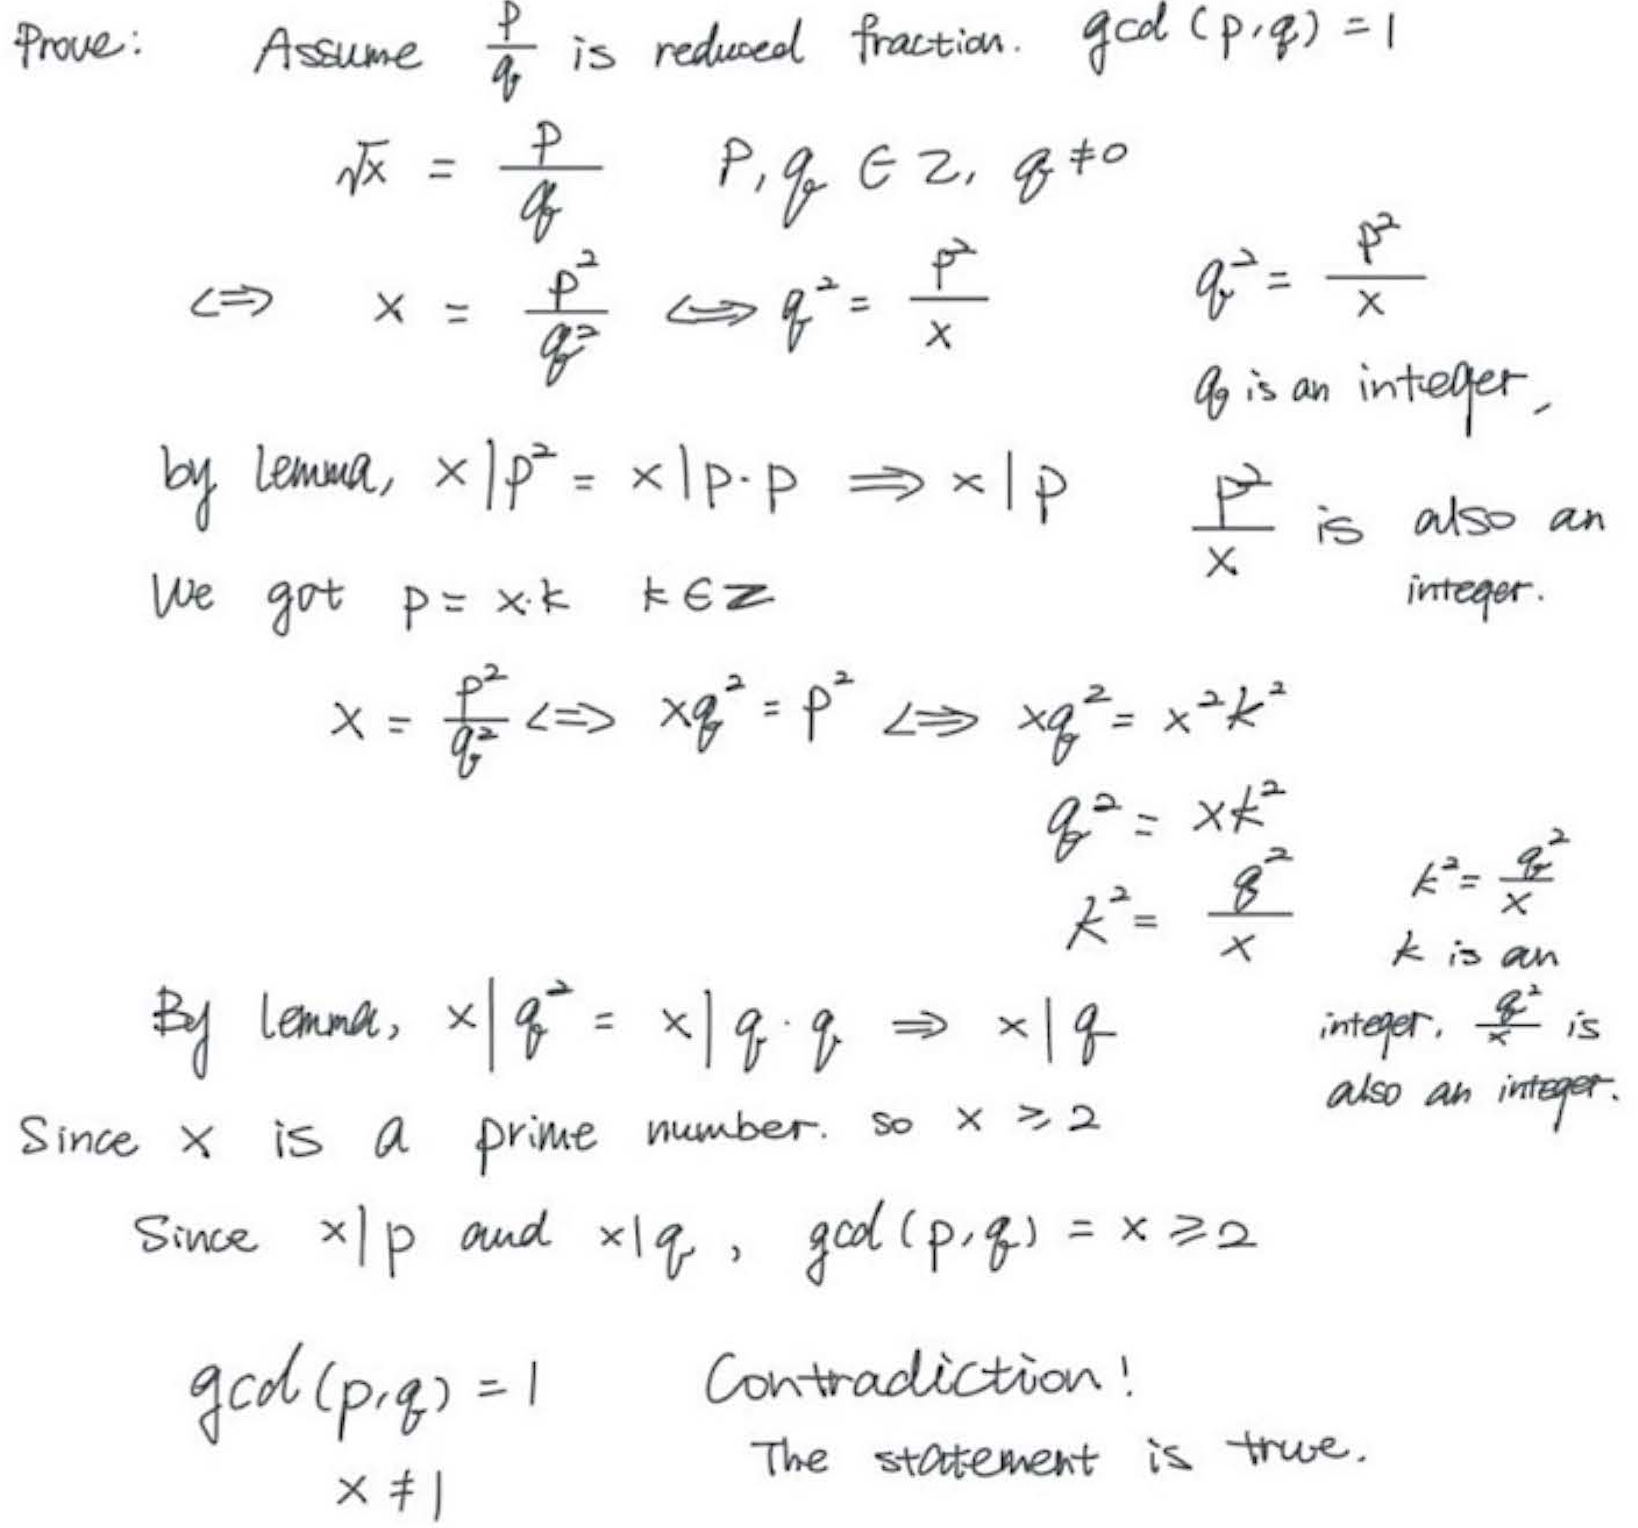 Prove: Assume p/q is reduced fraction. gcd (p,q) = 1
√x = p/q   P, q ∈ Z, q ≠ 0
⇔ x = p²/q² ⇔ q² = p²/x
q² = p²/x
q is an integer,
p²/x is also an
integer.
by lemma, x|p² = x|p·p ⇒ x|p
We got p = x·k k ∈ Z
x = p²/q² ⇔ xq² = p² ⇔ xq² = x²k²
q² = xk²
k² = q²/x
k² = q²/x
k is an
integer. q²/x is
also an integer.
By lemma, x|q² = x|q·q ⇒ x|q
Since x is a prime number. so x ⩾ 2
Since x|p and x|q, gcd(p,q) = x ⩾ 2
gcd(p,q) = 1   Contradiction!
x ≠ 1   The statement is true.